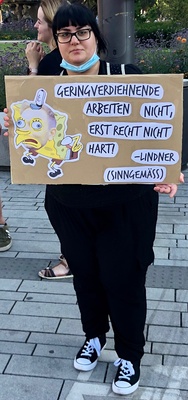 GERINGVERDIEHNENDE
ARBEITEN NICHT,
ERST RECHT NICHT
HART!
-LINDNER
(SINNGEMÄSS)